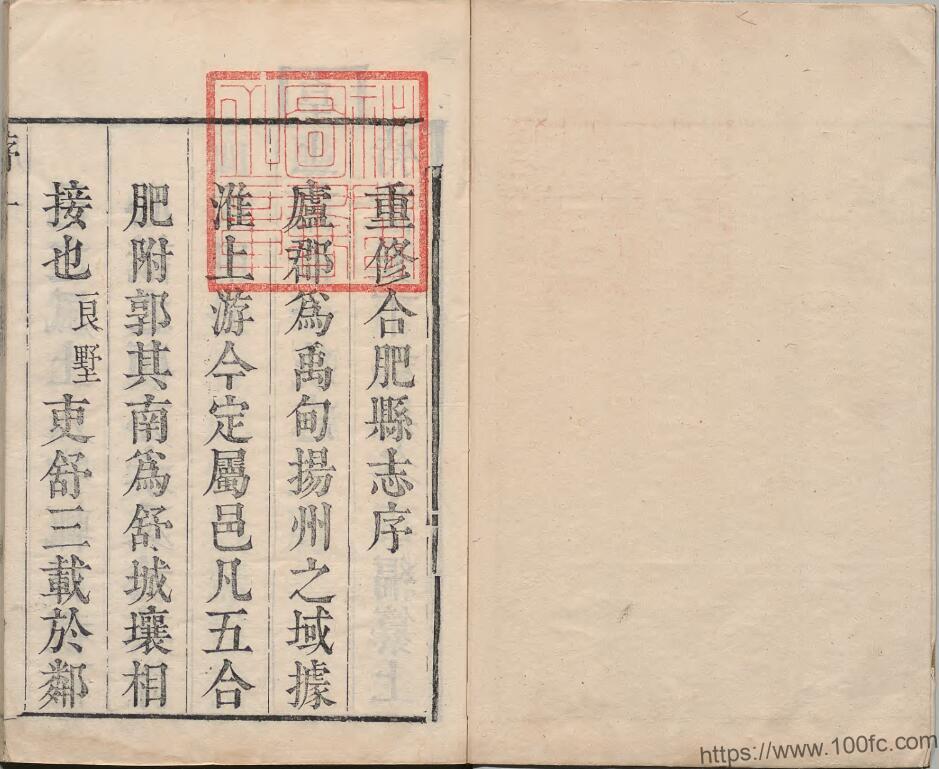 重修合肥縣志序
廬郡爲禹甸揚州之域據
淮上游今定屬邑凡五合
肥附郭其南爲舒城壤相
接也良墅吏舒三載於鄰
序一
https://www.100fc.com